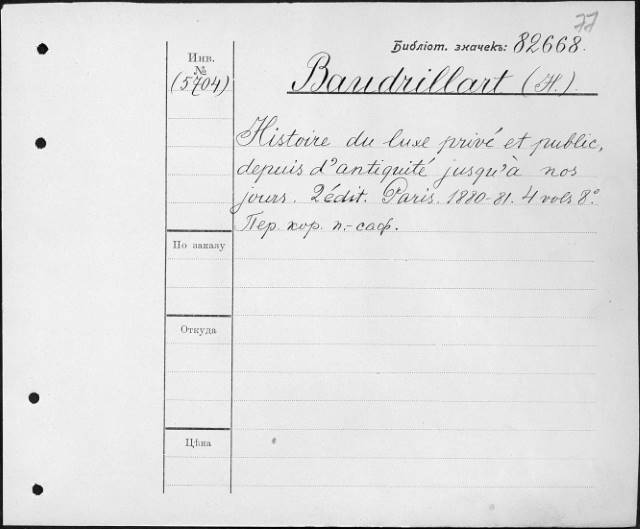 77
Библіот. значекъ: 82668.
Инв.
№
(5704)
Baudrillart (H.)
Histoire du luxe privé et public,
depuis d'antiquité jusqu'à nos
jours. 2 édit. Paris. 1880-81. 4 vols 8°.
Пер. кор. п.-саф.
По заказу
Откуда
Цѣна